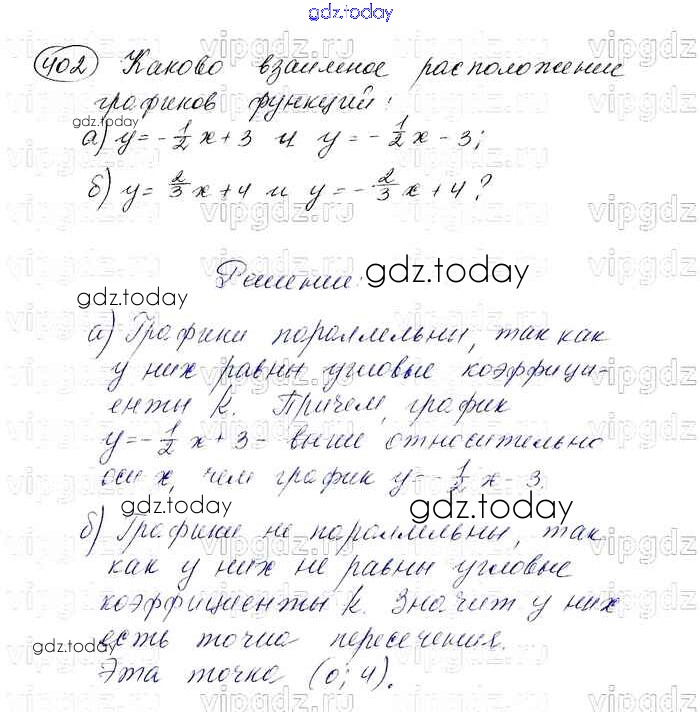 gdz.today
402 Каково взаимное расположение
графиков функций:
gdz.today
а) y = -1/2 x + 3 и y = -1/2 x - 3;
б) y = 2/3 x + 4 и y = -2/3 x + 4?
Решение:
gdz.today
gdz.today
а) Графики параллельны, так как
у них равны угловые коэффици-
енты k. Причем, график
y = -1/2 x + 3 - выше относительно
оси x, чем график y = -1/2 x - 3.
gdz.today
gdz.today
б) Графики не параллельны, так
как у них не равны угловые
коэффициенты k. Значит у них
есть точка пересечения.
gdz.today
Эта точка (0; 4).